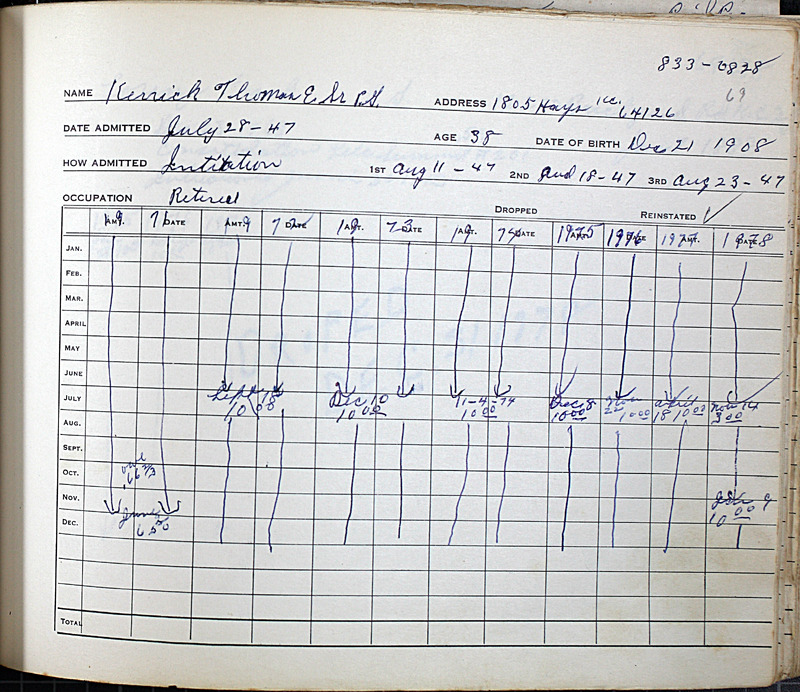 833-0828
69
NAME Kerrick Thomas E Sr P.S. ADDRESS 1805 Hays K.C. 64126
DATE ADMITTED July 28-47 AGE 38 DATE OF BIRTH Dec 21 1908
HOW ADMITTED Intitation 1ST Aug 11-47 2ND Aud 18-47 3RD Aug 23-47
OCCUPATION Retired DROPPED REINSTATED √
19 AMT. 71 DATE 19 AMT. 72 DATE 19 AMT. 73 DATE 19 AMT. 74 DATE 1975 AMT. 1976 DATE 1977 AMT. 1978 DATE
JAN.
FEB.
MAR.
APRIL
MAY
JUNE
JULY Sept 18 Dec 10 11-4-74 Dec 8 Nov April Nov 14
10 00 10 00 10 00 10 00 22 10 00 18 10 00 3 00
AUG.
SEPT.
OCT. 66 2/3
NOV. 9
June 10 00
DEC. 6 50
TOTAL